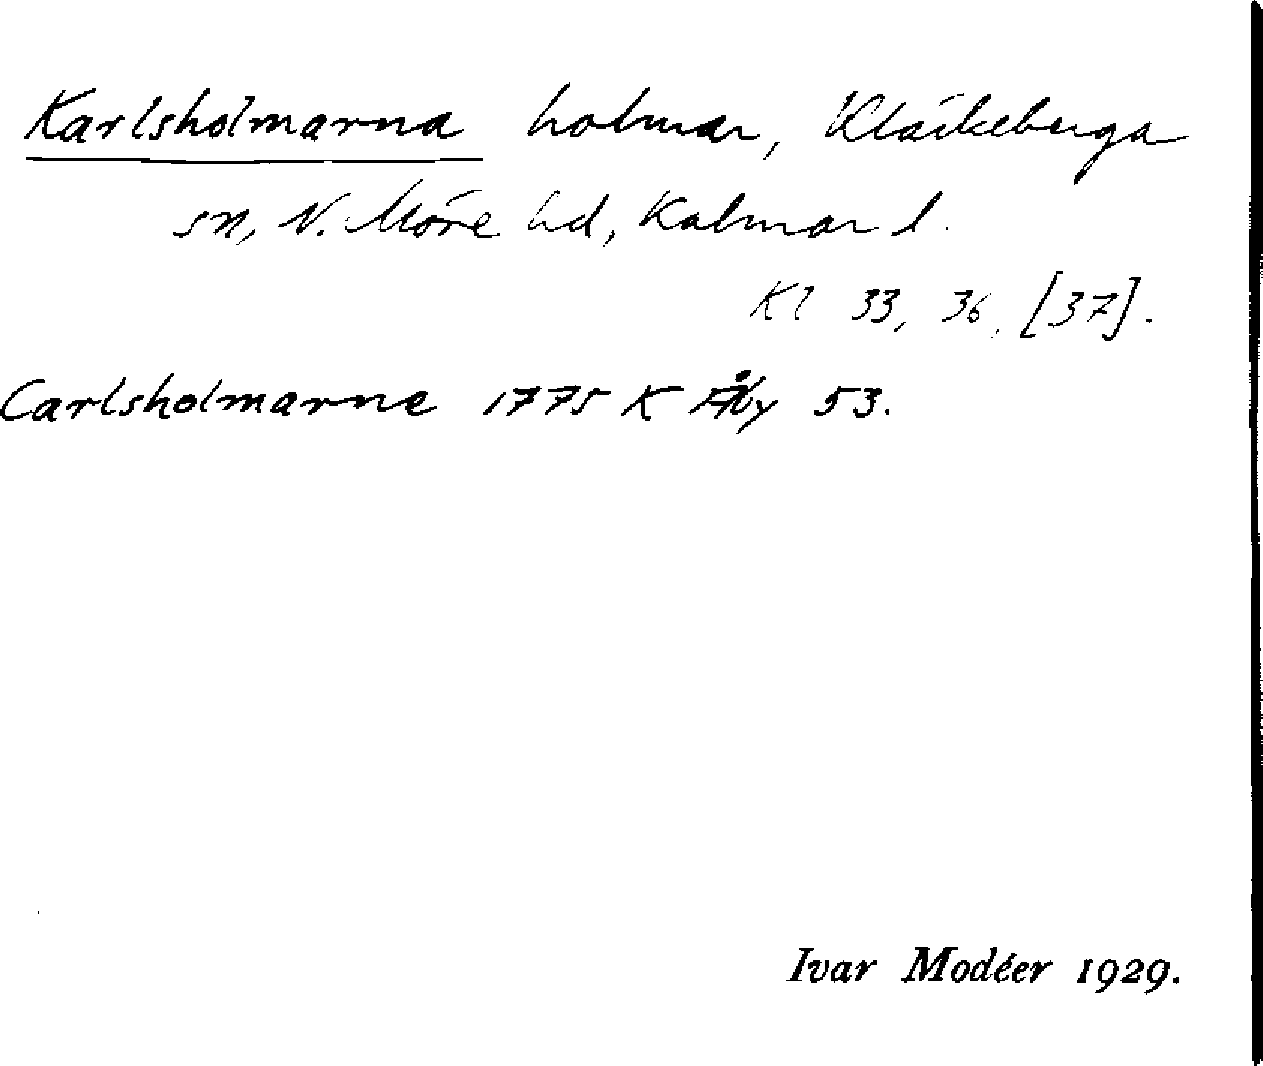 Karlsholmarna holmar, Kläckeberga
sn, N. Möre hd, Kalmar l.
Kl 33, 36, [37].
Carlsholmarne 1775 K Åby 53.
Ivar Modéer 1929.